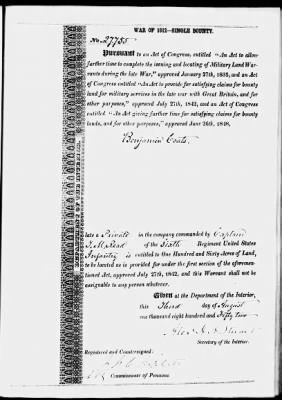 WAR OF 1812—SINGLE BOUNTY.
No. 27755
Pursuant to an Act of Congress, entitled "An Act to allow
further time to complete the issuing and locating of Military Land War-
rants during the late War," approved January 27th, 1835, and an Act
of Congress entitled "An Act to provide for satisfying claims for bounty
land for military services in the late war with Great Britain, and for
other purposes," approved July 27th, 1842, and an Act of Congress
entitled "An Act giving further time for satisfying claims for bounty
lands, and for other purposes," approved June 26th, 1848,
Benjamin Coats,
late a Private in the company commanded by Captain
Read of the Sixth Regiment United States
Infantry is entitled to One Hundred and Sixty Acres of Land,
to be located as is provided for under the first section of the aforemen-
tioned Act, approved July 27th, 1842, and this Warrant shall not be
assignable to any person whatever.
Given at the Department of the Interior,
this Third day of August
one thousand eight hundred and Fifty two
Alex H. H. Stuart
Secretary of the Interior.
Registered and Countersigned:
Commissioner of Pensions.